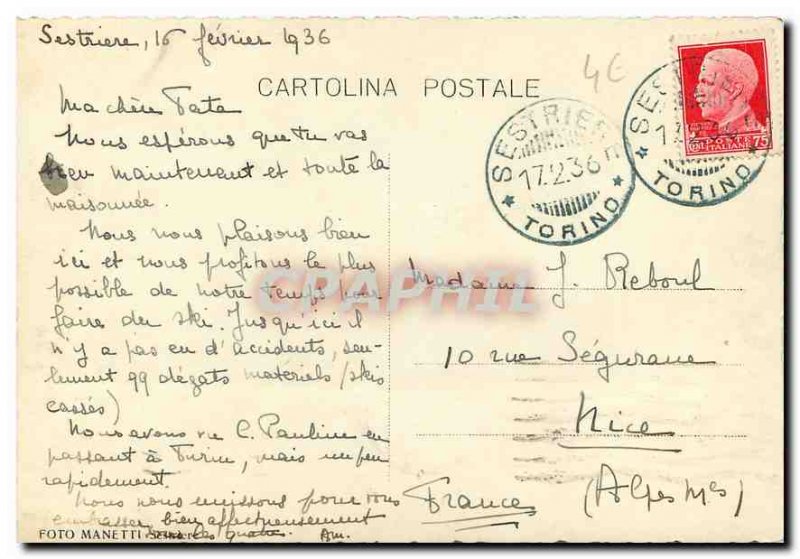 Sestriere, 16 février 1936
4€
CARTOLINA POSTALE
Ma chère Tata
Nous espérons que tu vas
bien maintenant et toute la
maisonnée.
Nous nous plaisons bien
ici et nous profitons le plus
possible de notre temps pour
faire du ski. Jusqu'ici il
n'y a pas eu d'accidents, seu-
lement qq dégats matériels (skis
cassés)
Nous avons vu C. Pauline en
passant à Turin, mais un peu
rapidement.
Nous nous unissons pour vous
embrasser bien affectueusement
tous les quatre. Am.
FOTO MANETTI - Sestriere
SESTRIERE
17.2.36
TORINO
SESTRIERE
TORINO
POSTE
ITALIANE
CENT 75
Madame J. Reboul
10 rue Ségurane
Nice
(Alpes Mes)
France
CPAPHIL